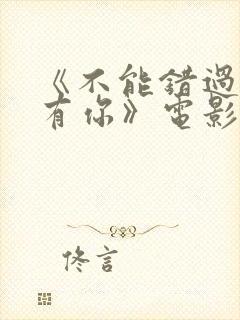 《不能錯過
有你》電影
佟言